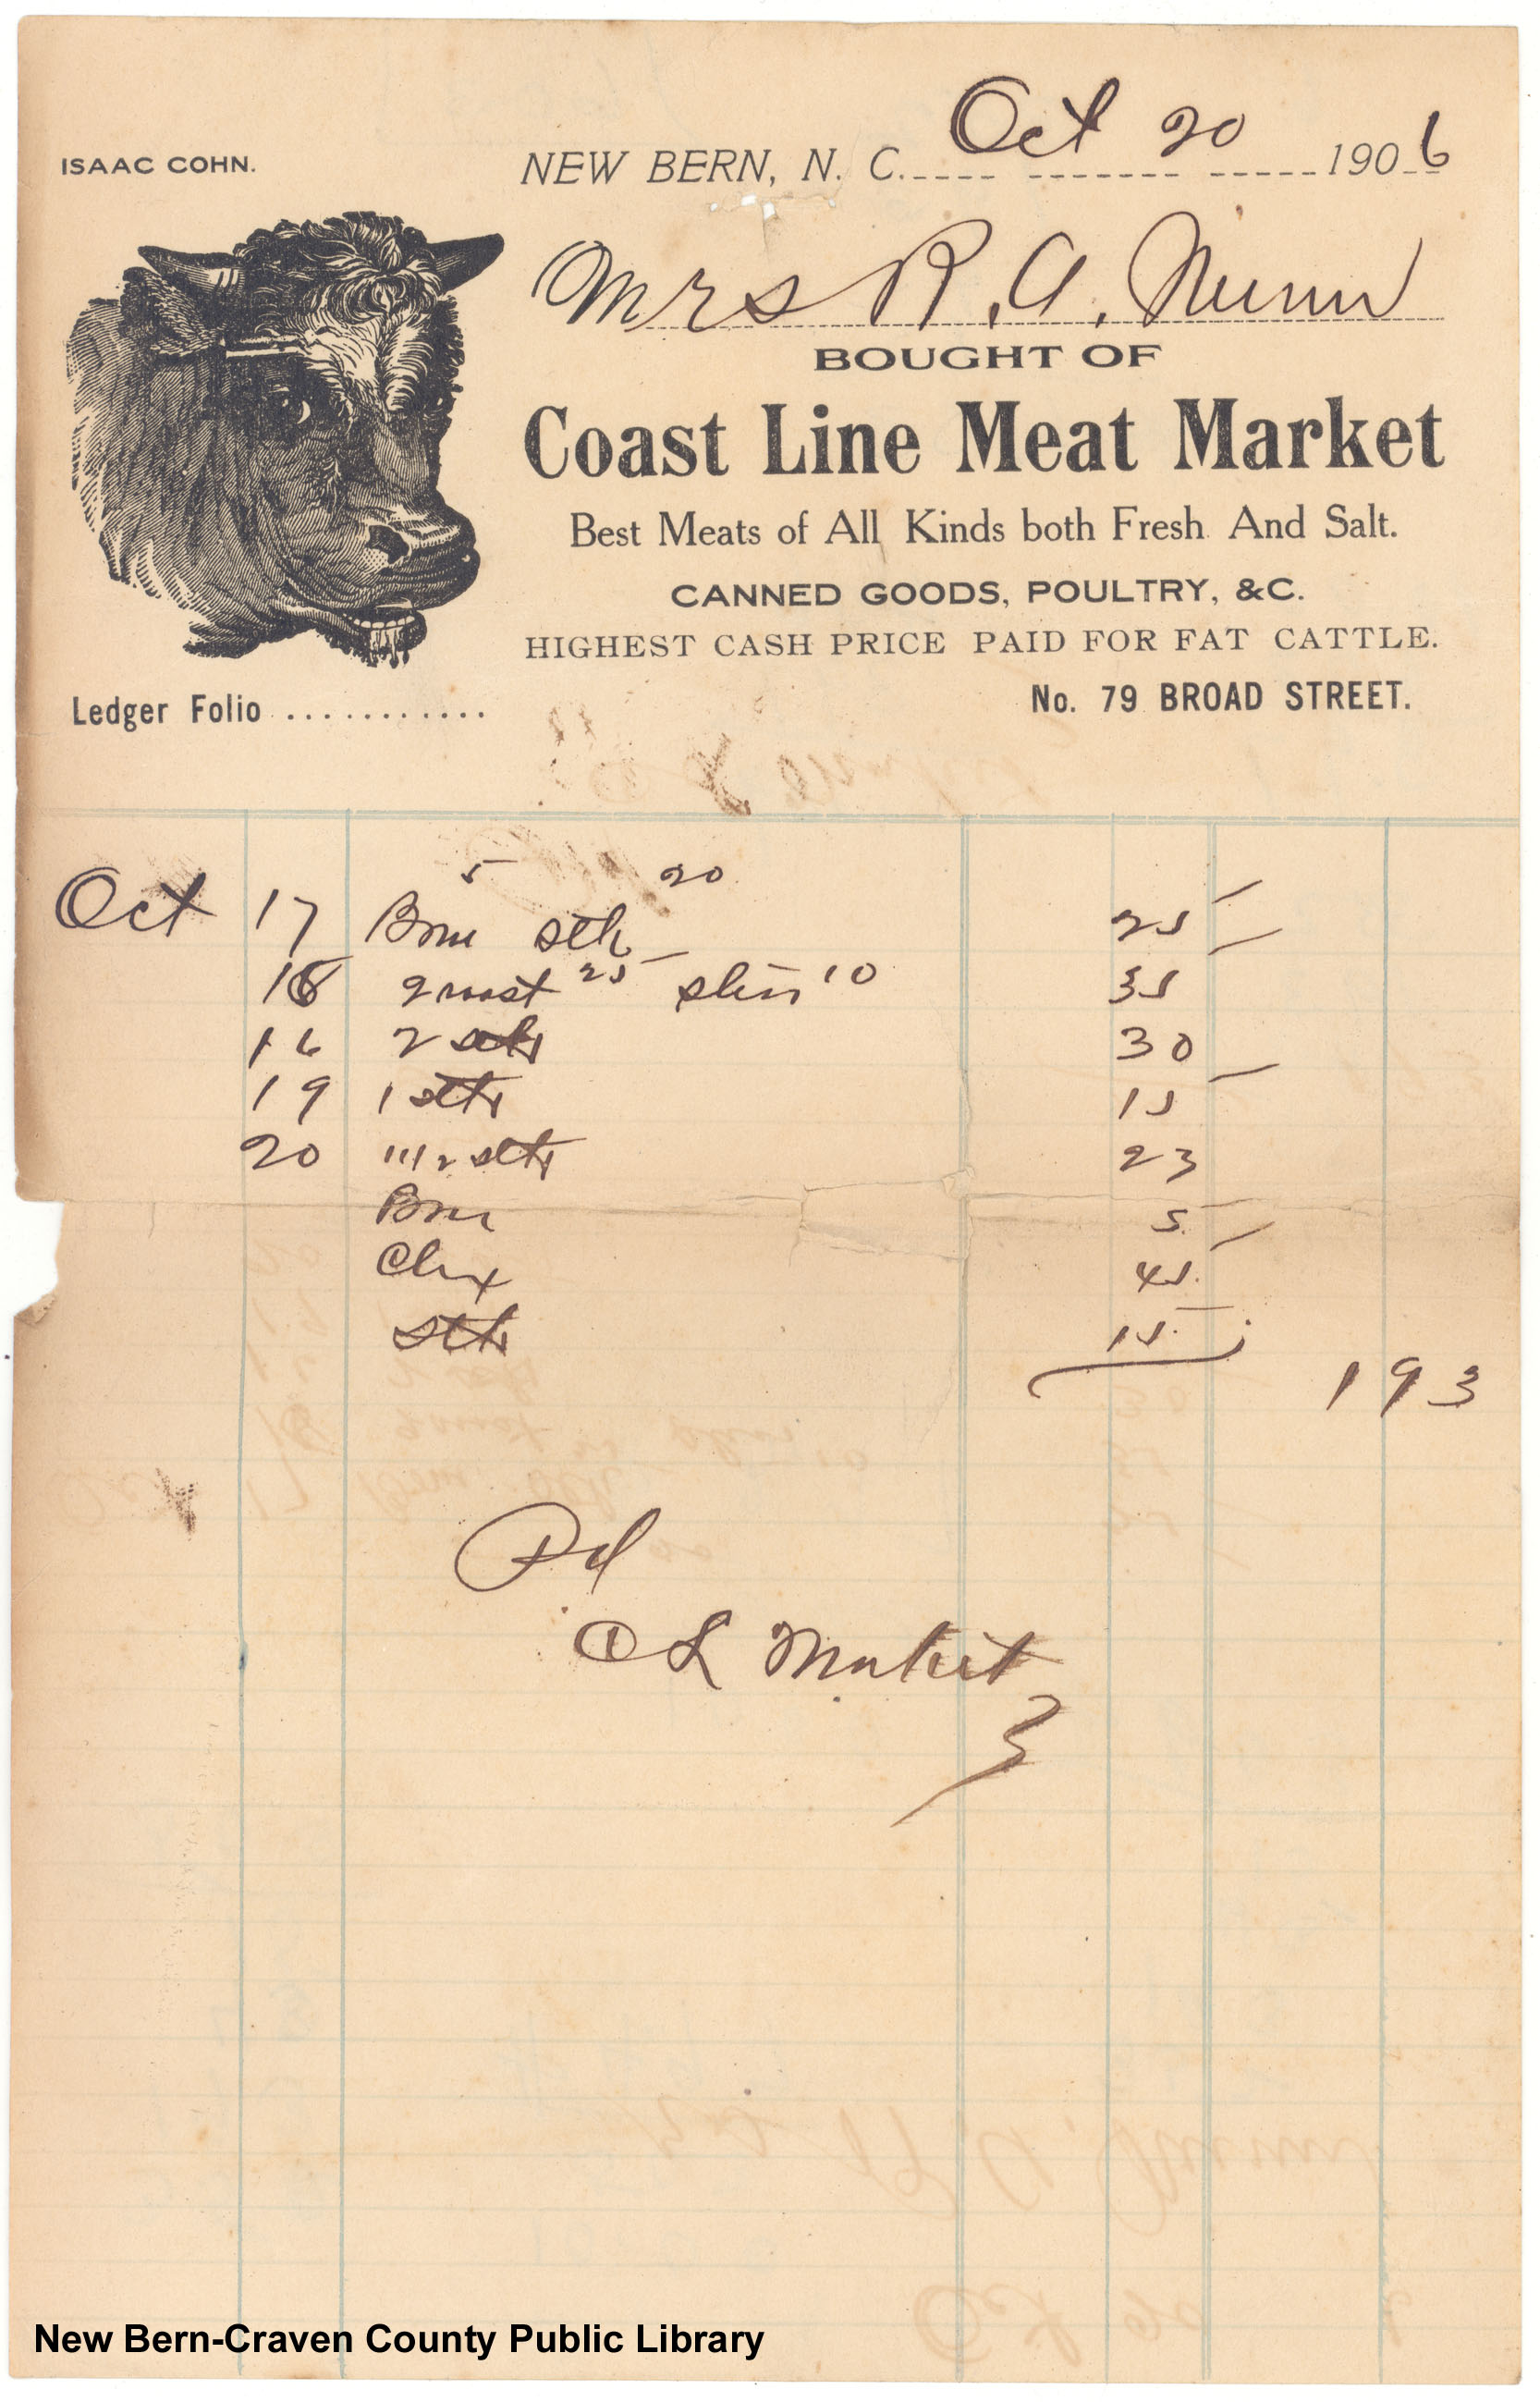 ISAAC COHN.
NEW BERN, N. C. Oct 20 1906
Mrs R. A. Nunn
BOUGHT OF
Coast Line Meat Market
Best Meats of All Kinds both Fresh And Salt.
CANNED GOODS, POULTRY, &C.
HIGHEST CASH PRICE PAID FOR FAT CATTLE.
Ledger Folio ...........
No. 79 BROAD STREET.
5 20
Oct 17 Bone stk 25
18 roast 25 10 35
16 2 stk 30
19 1 stk 15
20 stk 23
Bone 5
45
stk 15
193
Pd
C L Market
New Bern-Craven County Public Library